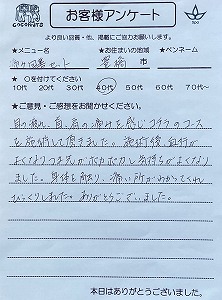 COCONUTS
お客様アンケート
より良い回答・他、掲載にご協力お願いします。
★メニュー名 ★お住まいの地域 ★ペンネーム
セット 豊橋 市
★ ○を付けてください
10代 20代 30代 40代 50代 60代 70代〜
★ご意見・ご感想をお聞かせください。
目の疲れ、首、肩の痛みを感じコチラのコース
を施術して頂きました。施術後、血行が
よくなりつま先がポカポカし気持ちがよくなり
ました。身体を触り、痛い所がわかってくれ
びっくりしました。ありがとうございました。
本日はありがとうございました。